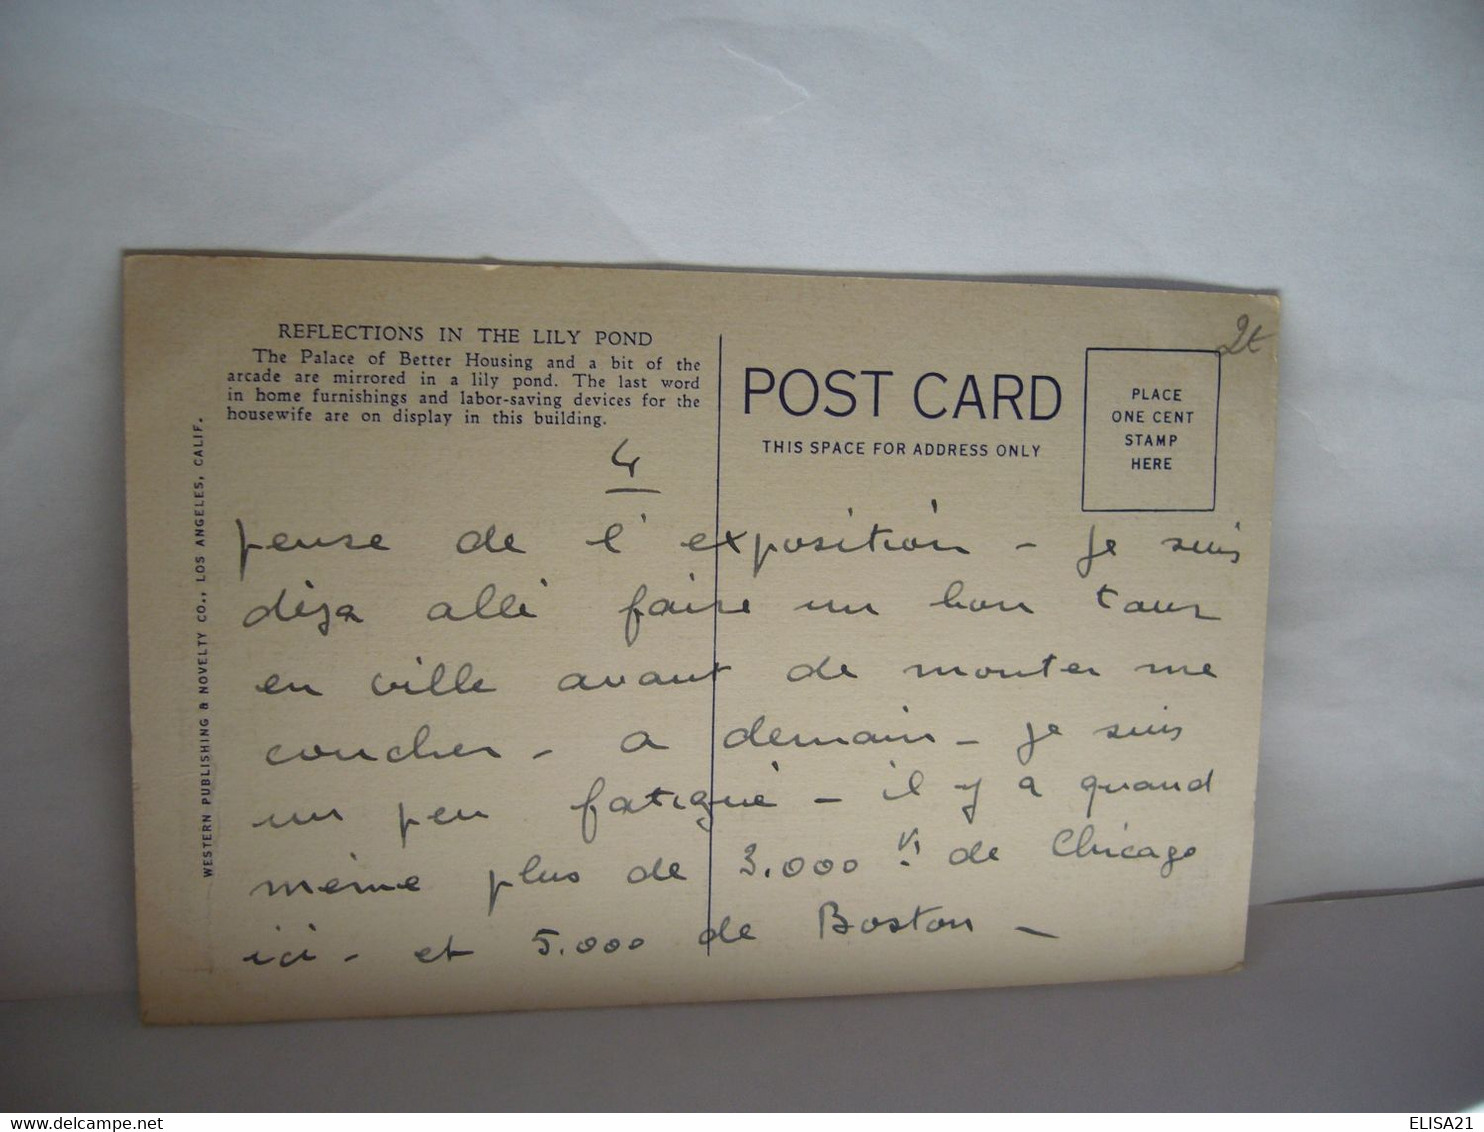 REFLECTIONS IN THE LILY POND
The Palace of Better Housing and a bit of the
arcade are mirrored in a lily pond. The last word
in home furnishings and labor-saving devices for the
housewife are on display in this building.
WESTERN PUBLISHING & NOVELTY CO., LOS ANGELES, CALIF.
POST CARD
THIS SPACE FOR ADDRESS ONLY
PLACE
ONE CENT
STAMP
HERE
2t
4
pense de l'exposition - je suis
déja allé faire un bon tour
en ville avant de monter me
coucher - a demain - je suis
un peu fatigué - il y a quand
même plus de 3.000 de Chicago
ici - et 5.000 de Boston -
ELISA21